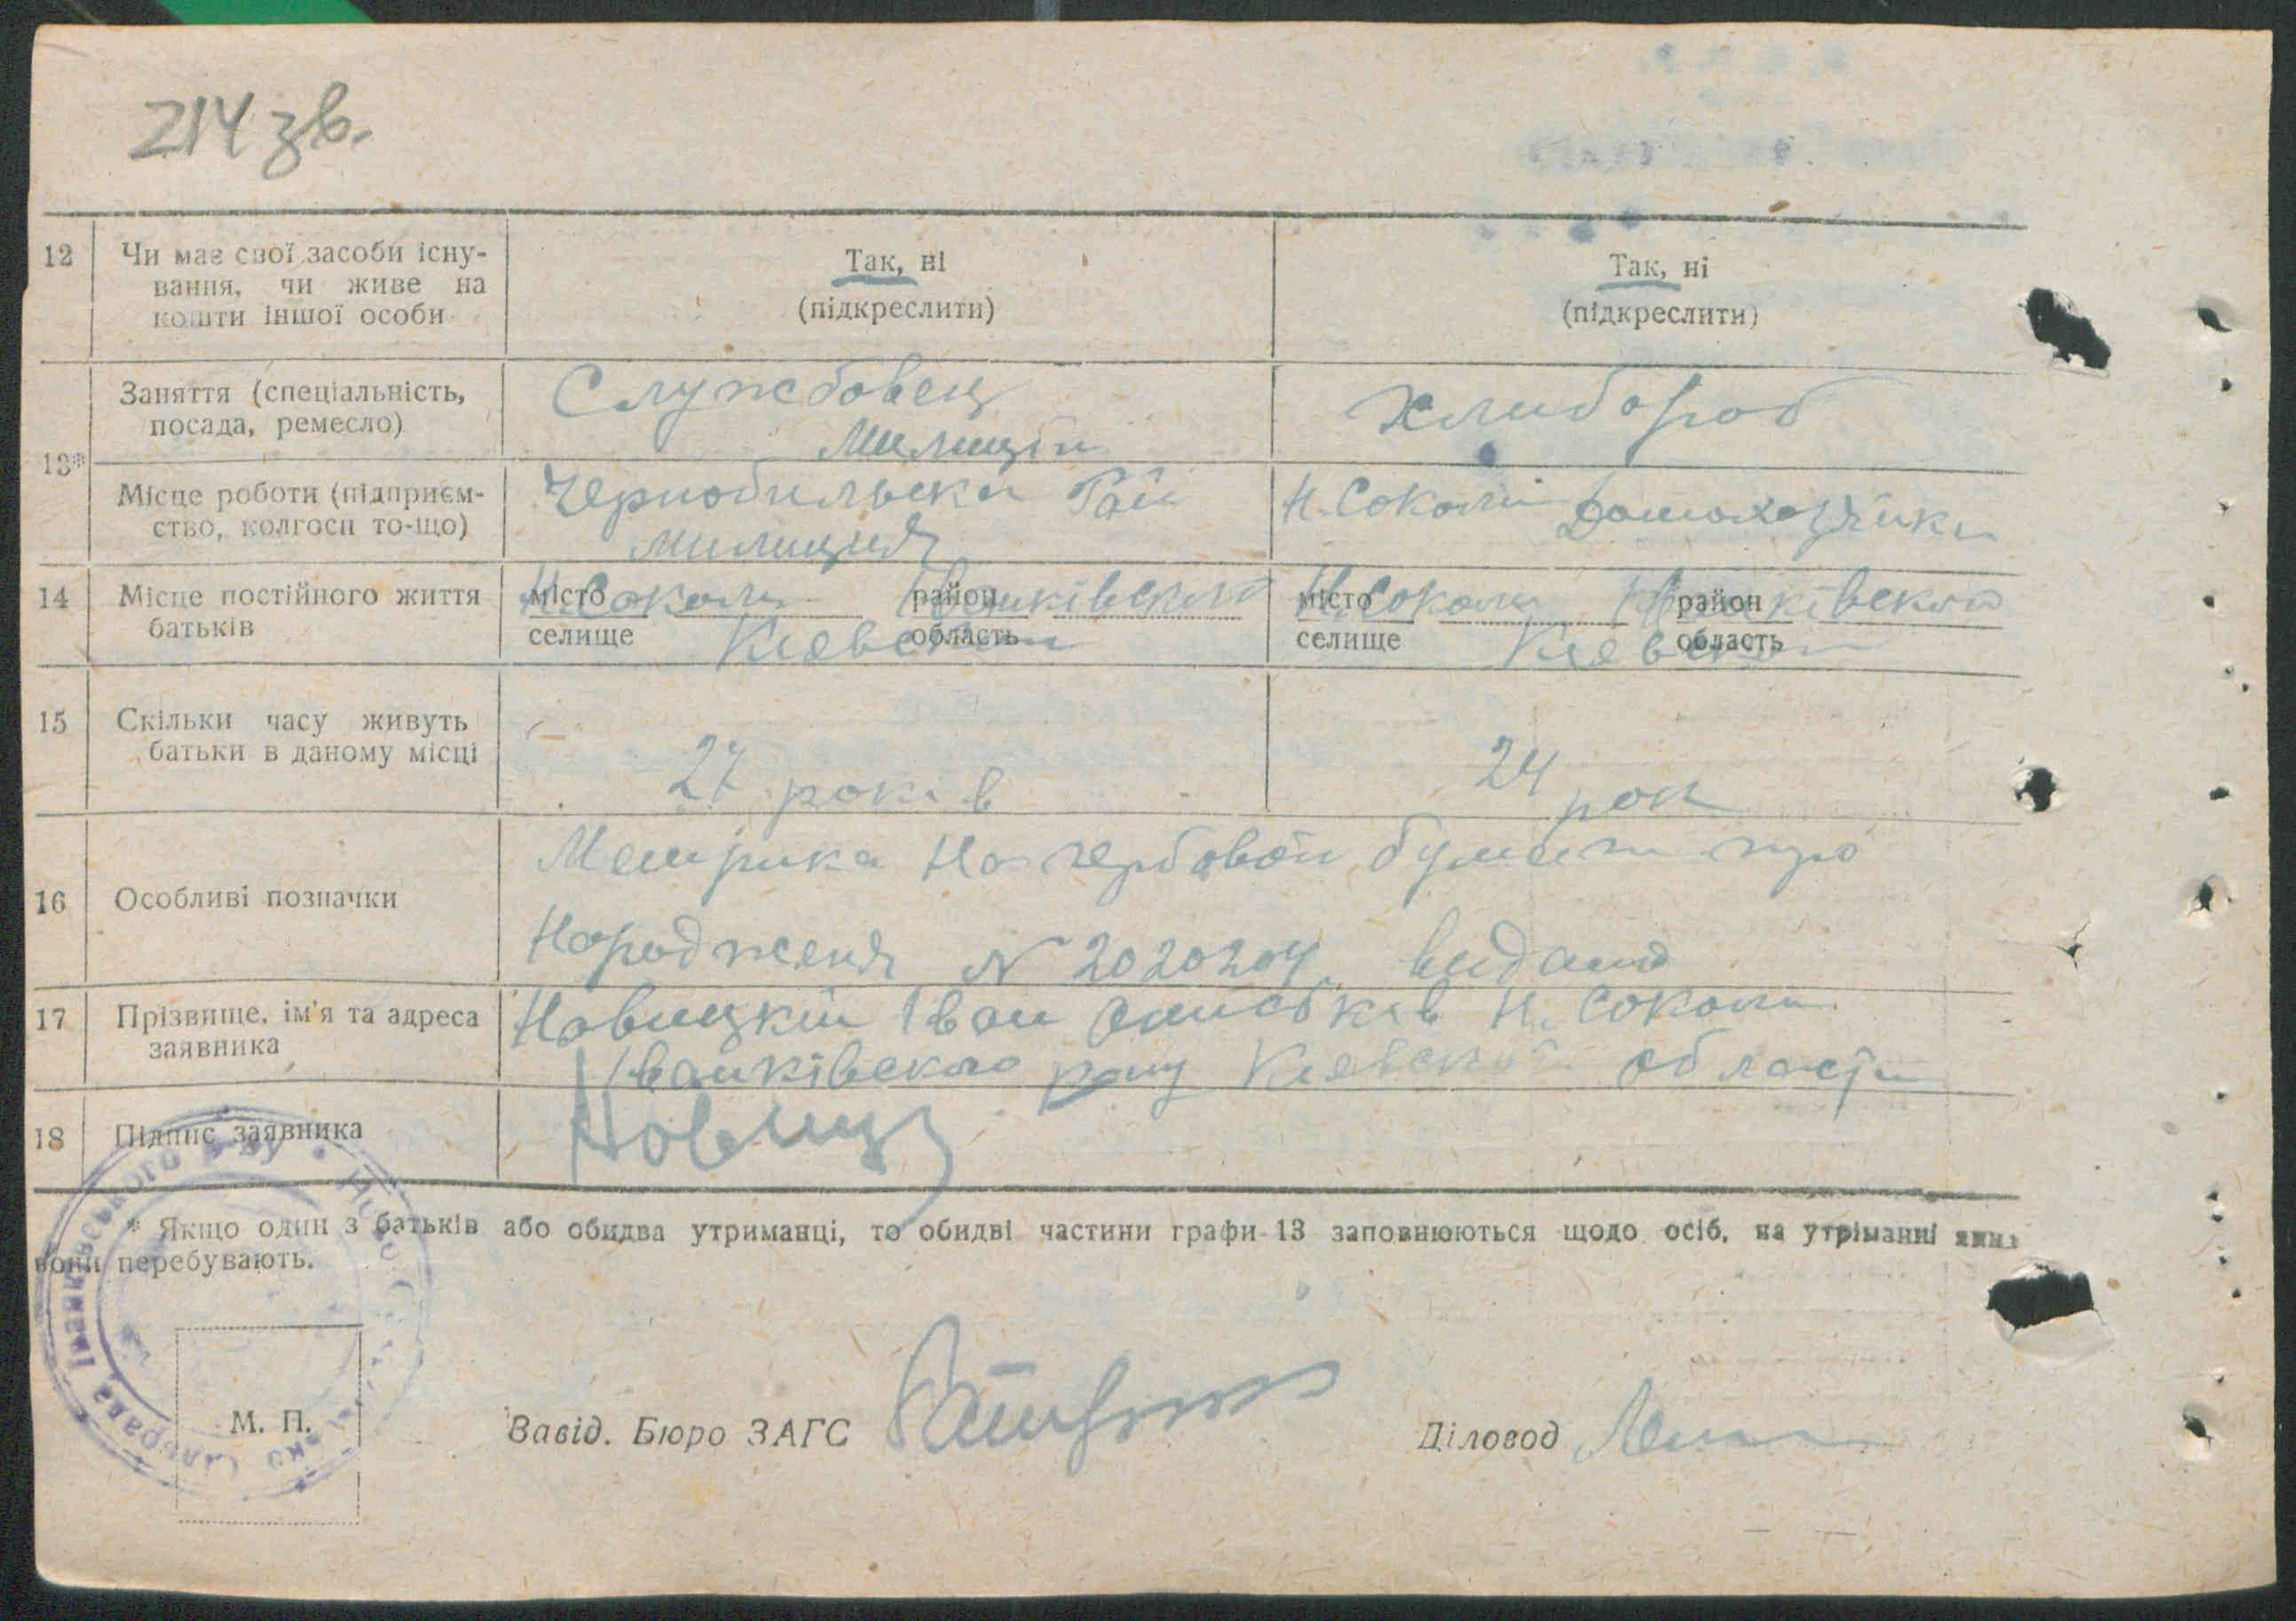 214 зв.
12 Чи має свої засоби існу-
вання, чи живе на
кошти іншої особи
Так, ні
(підкреслити)
Так, ні
(підкреслити)
13*
Заняття (спеціальність,
посада, ремесло)
Службовец
Милиціи
Хлибороб
Місце роботи (підприєм-
ство, колгосп то-що)
Чернобильска Рай
милиция
Н. Соколи
14 Місце постійного життя
батьків
місто Н. Соколи район Іванківский
селище Киевской область
місто Н. Соколи район Іванківской
селище Киевской область
15 Скільки часу живуть
батьки в даному місці
27 років
24 рок
16 Особливі позначки
Метрика На гербовой бумаги про
Народженя N 2020204 видана
17 Прізвище, ім'я та адреса
заявника
Новицкий Іван Н. Соколи
Іванківского рану Киевской области
18 Підпис заявника
Новицк
* Якщо один з батьків або обидва утриманці, то обидві частини графи 13 заповнюються щодо осіб, на утріманні яких
вони перебувають.
М. П.
Завід. Бюро ЗАГС
Діловод